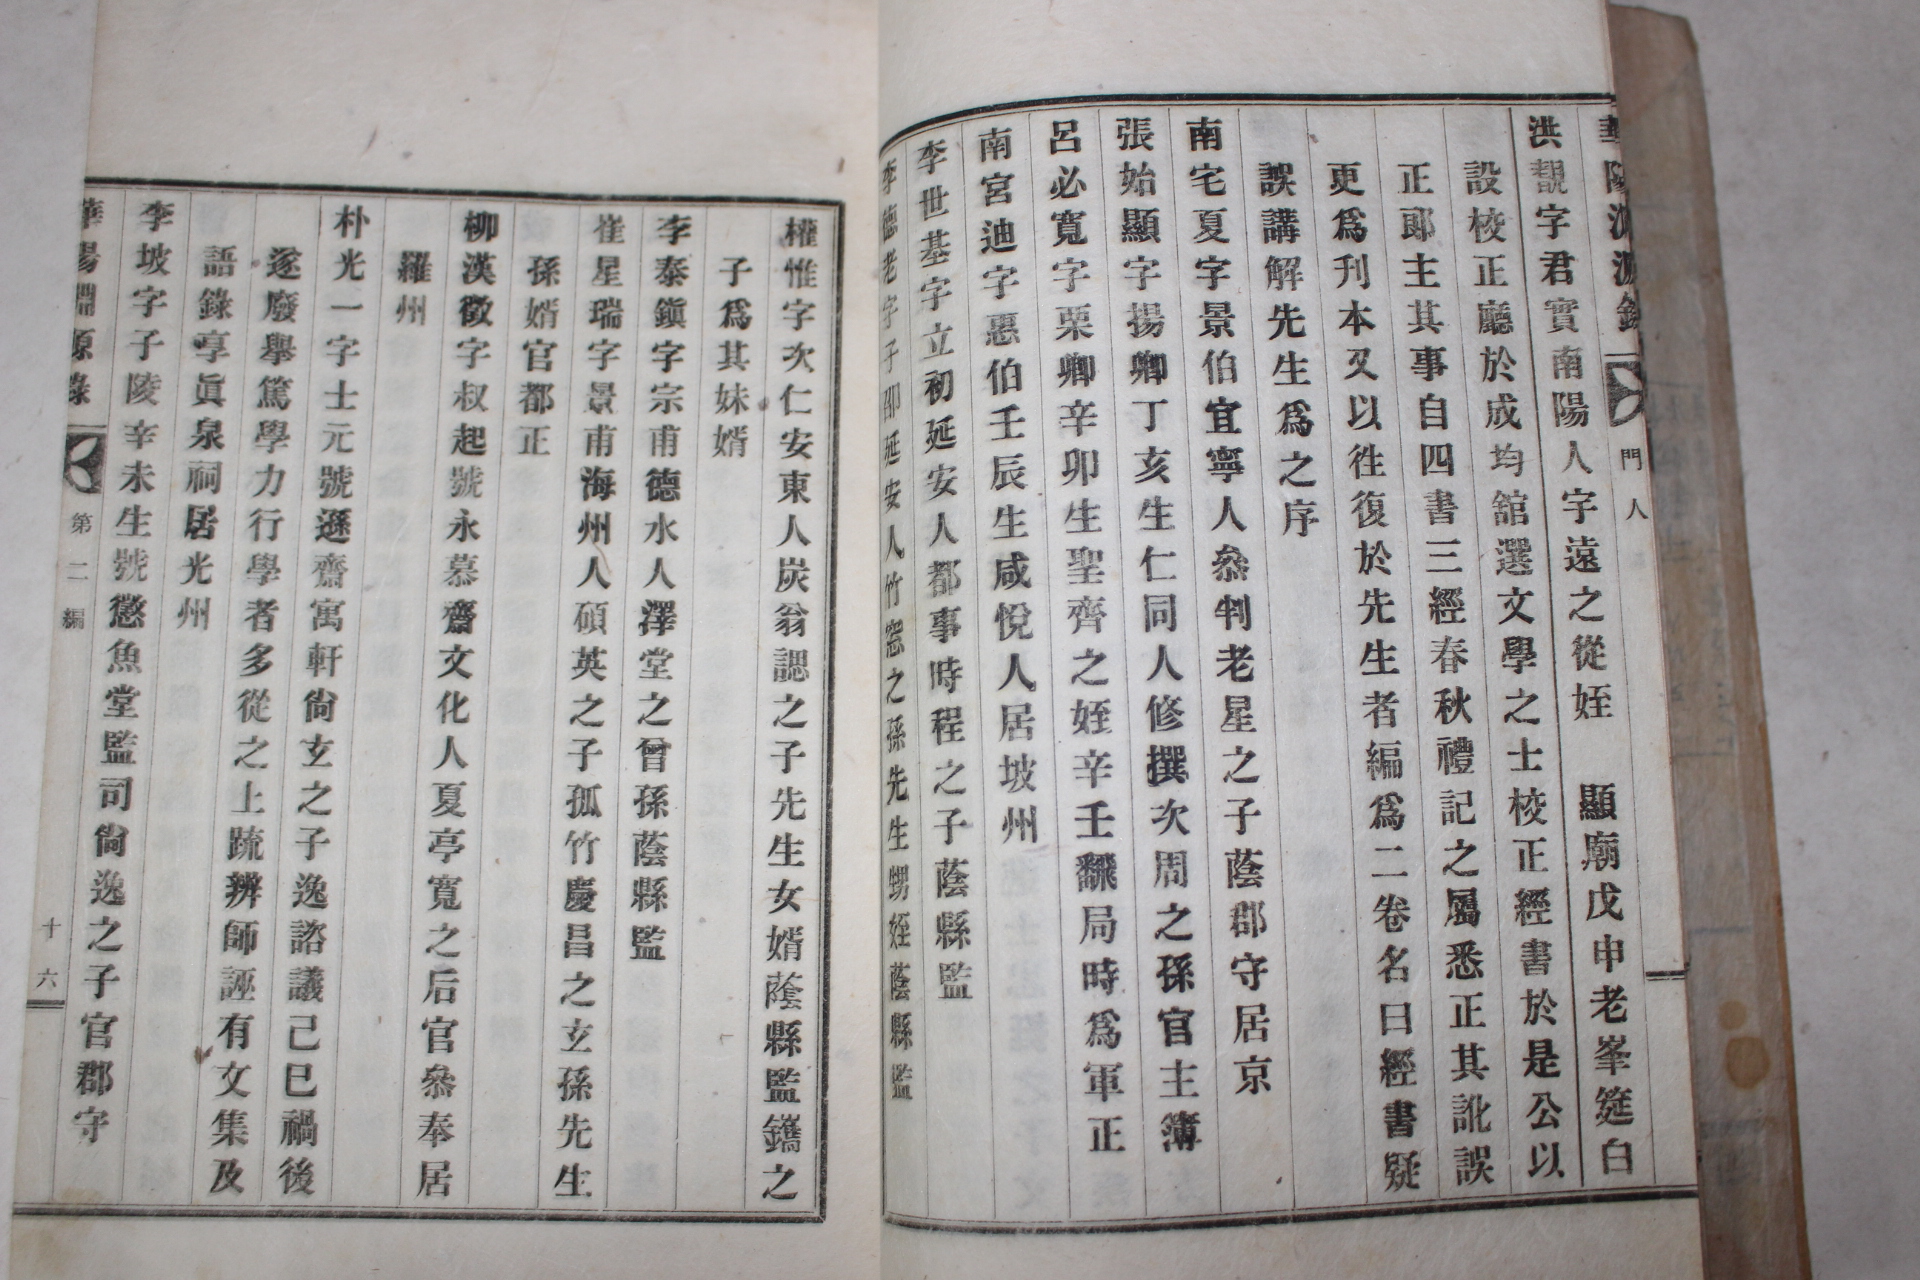 華陽淵源錄 門人
洪覩字君實南陽人字遠之從姪 顯廟戊申老峯筵白
設校正廳於成均舘選文學之士校正經書於是公以
正郞主其事自四書三經春秋禮記之屬悉正其訛誤
更爲刊本又以往復於先生者編爲二卷名曰經書疑
誤講解先生爲之序
南宅夏字景伯宜寧人叅判老星之子蔭郡守居京
張始顯字揚卿丁亥生仁同人修撰次周之孫官主簿
呂必寬字栗卿辛卯生聖齊之姪辛壬飜局時爲軍正
南宮迪字惪伯壬辰生咸悅人居坡州
李世基字立初延安人都事時程之子蔭縣監
李德老字子卲延安人竹窓之孫先生甥姪蔭縣監
權惟字次仁安東人炭翁諰之子先生女婿蔭縣監鑴之
子爲其妹婿
李泰鎭字宗甫德水人澤堂之曾孫蔭縣監
崔星瑞字景甫海州人碩英之子孤竹慶昌之玄孫先生
孫婿官都正
柳漢徵字叔起號永慕齋文化人夏亭寬之后官叅奉居
羅州
朴光一字士元號遜齋寓軒尙玄之子逸諮議己巳禍後
遂廢擧篤學力行學者多從之上疏辨師誣有文集及
語錄享眞泉祠居光州
李坡字子陵辛未生號懲魚堂監司尙逸之子官郡守
華陽淵源錄 第二編 十六